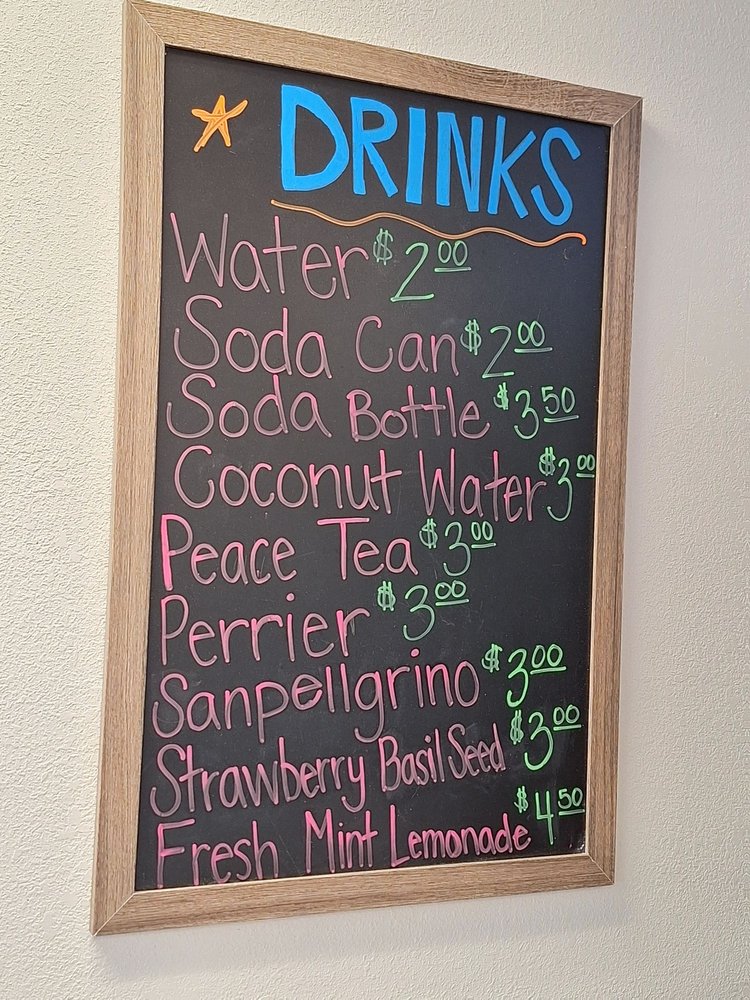 DRINKS
Water $2.00
Soda Can $2.00
Soda Bottle $3.50
Coconut Water $3.00
Peace Tea $3.00
Perrier $3.00
Sanpellgrino $3.00
Strawberry Basil Seed $3.00
Fresh Mint Lemonade $4.50